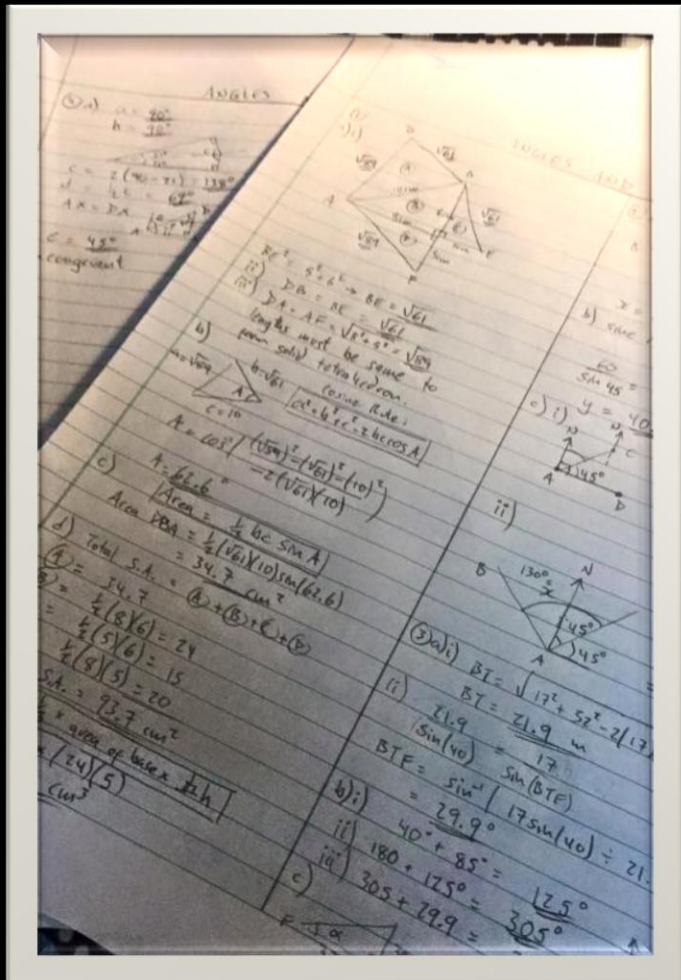 ANGLES
a = 90°
b = 90°
= 138°
= 69°
AX = DX
= 45°
congruent
ANGLES AND
i)
D
√89
√61
A
B
√61
√89
E
F
BE² = 5² + 6² → BE = √61
ii) DB = BE = √61
iii) DA = AF = √8² + 5² = √89
lengths must be same to
form solid tetrahedron.
b)
a=√89
b=√61
A
c=10
Cosine Rule:
a² = b² + c² - 2bc cos A
A = cos⁻¹ ( (√89)² - (√61)² - (10)²
-2(√61)(10) )
A = 62.6°
c) Area = ½ bc sin A
Area DBA = ½(√61)(10)sin(62.6)
= 34.7 cm²
d) Total S.A. = Ⓐ + Ⓑ + Ⓒ + Ⓓ
Ⓐ = 34.7
= ½(8)(6) = 24
½(5)(6) = 15
½(8)(5) = 20
S.A. = 93.7 cm²
x area of base x h
(24)(5)
cm³
x =
b) sine
60
sin 45 =
y = 40
c) i)
N
N
C
A
45°
D
ii)
B
130°
x
N
45°
45°
A
③ a) i) BT = √17² + 32² - 2(17)
BT = 21.9 m
ii) 21.9 = 17
sin(40) sin(BTF)
BTF = sin⁻¹ ( 17 sin(40) ÷ 21.
= 29.9°
b) i) 40° + 85° = 125°
ii) 180 + 125° = 305°
iii) 305 + 29.9 =
c)
F
α